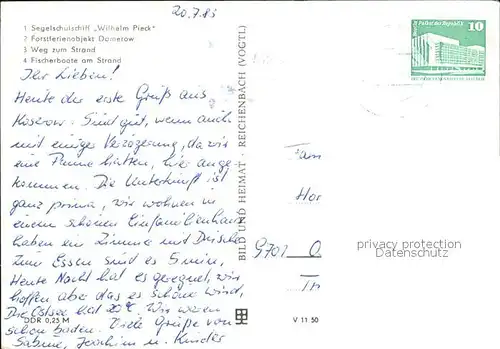 20.7.85
1 Segelschulschiff „Wilhelm Pieck"
2 Forstferienobjekt Damerow
3 Weg zum Strand
4 Fischerboote am Strand
Ihr Lieben!
Heute der erste Gruß aus
Koserow. Sind gut, wenn auch
mit einiger Verzögerung, da wir
eine Panne hatten, hier ange-
kommen. Die Unterkunft ist
ganz prima, wir wohnen in
einem schönen Einfamilienhaus
haben ein Zimmer mit Dusche
Zum Essen sind es 5 min,
Heute Nacht hat es geregnet, wir
hoffen aber das es schön wird,
Die Ostsee hat 20°C. Wir waren
schon baden. Viele Grüße von
Sabine, Joachim u. Kinder
DDR 0,25 M
BILD UND HEIMAT · REICHENBACH (VOGTL)
V 11 50
10
Fam
Hor
9701 O
privacy protection
Datenschutz